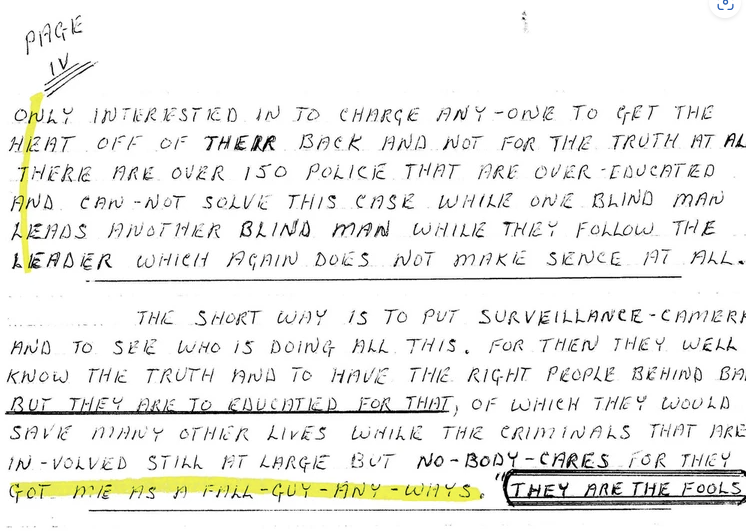 PAGE
IV
ONLY INTERESTIED IN TO CHARGE ANY-ONE TO GET THE
HEAT OFF OF THERR BACK AND NOT FOR THE TRUTH AT AL
THERE ARE OVER 150 POLICE THAT ARE OVER-EDUCATED
AND CAN-NOT SOLVE THIS CASE WHILE ONE BLIND MAN
LEADS ANOTHER BLIND MAN WHILE THEY FOLLOW THE
LEADER WHICH AGAIN DOES NOT MAKE SENCE AT ALL.
THE SHORT WAY IS TO PUT SURVEILLANCE-CAMER
AND TO SEE WHO IS DOING ALL THIS. FOR THEN THEY WELL
KNOW THE TRUTH AND TO HAVE THE RIGHT PEOPLE BEHIND BA
BUT THEY ARE TO EDUCATIED FOR THAT, OF WHICH THEY WOULD
SAVE MANY OTHER LIVES WHILE THE CRIMINALS THAT ARE
IN-VOLVED STILL AT LARGE BUT NO-BODY-CARES FOR THEY
GOT ME AS A FALL-GUY-ANY-WAYS. "THEY ARE THE FOOLS